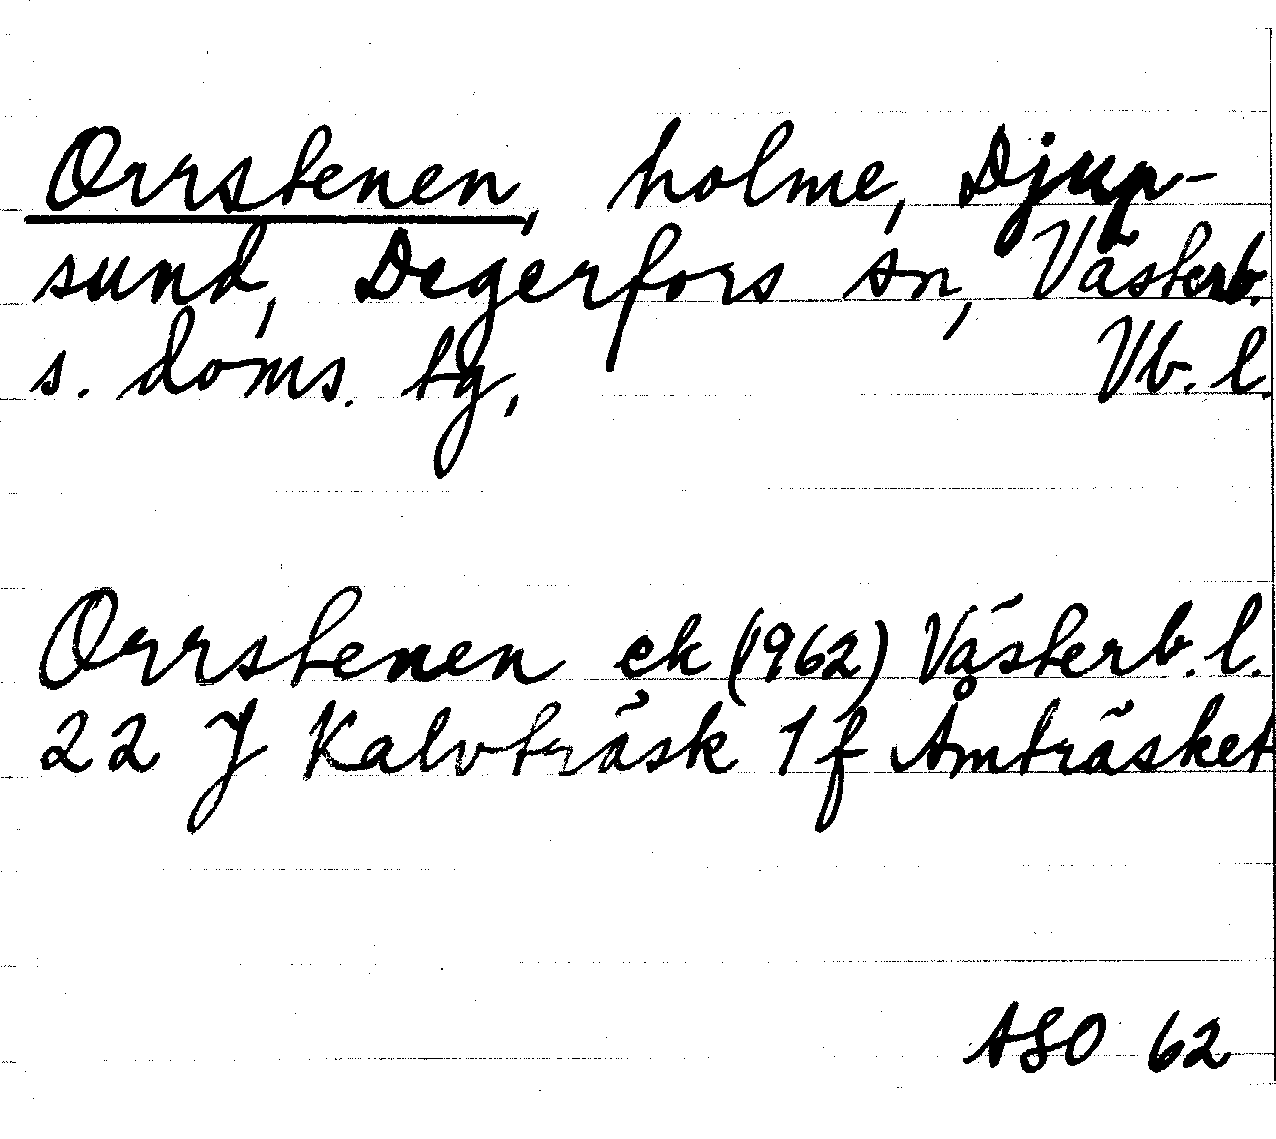 Orrstenen, holme, Djup-
sund, Degerfors sn, Västerb.
s. doms. tg, Vb. l.
Orrstenen ek (1962) Västerb. l.
22 J Kalvträsk 1 f Åmträsket
ASO 62